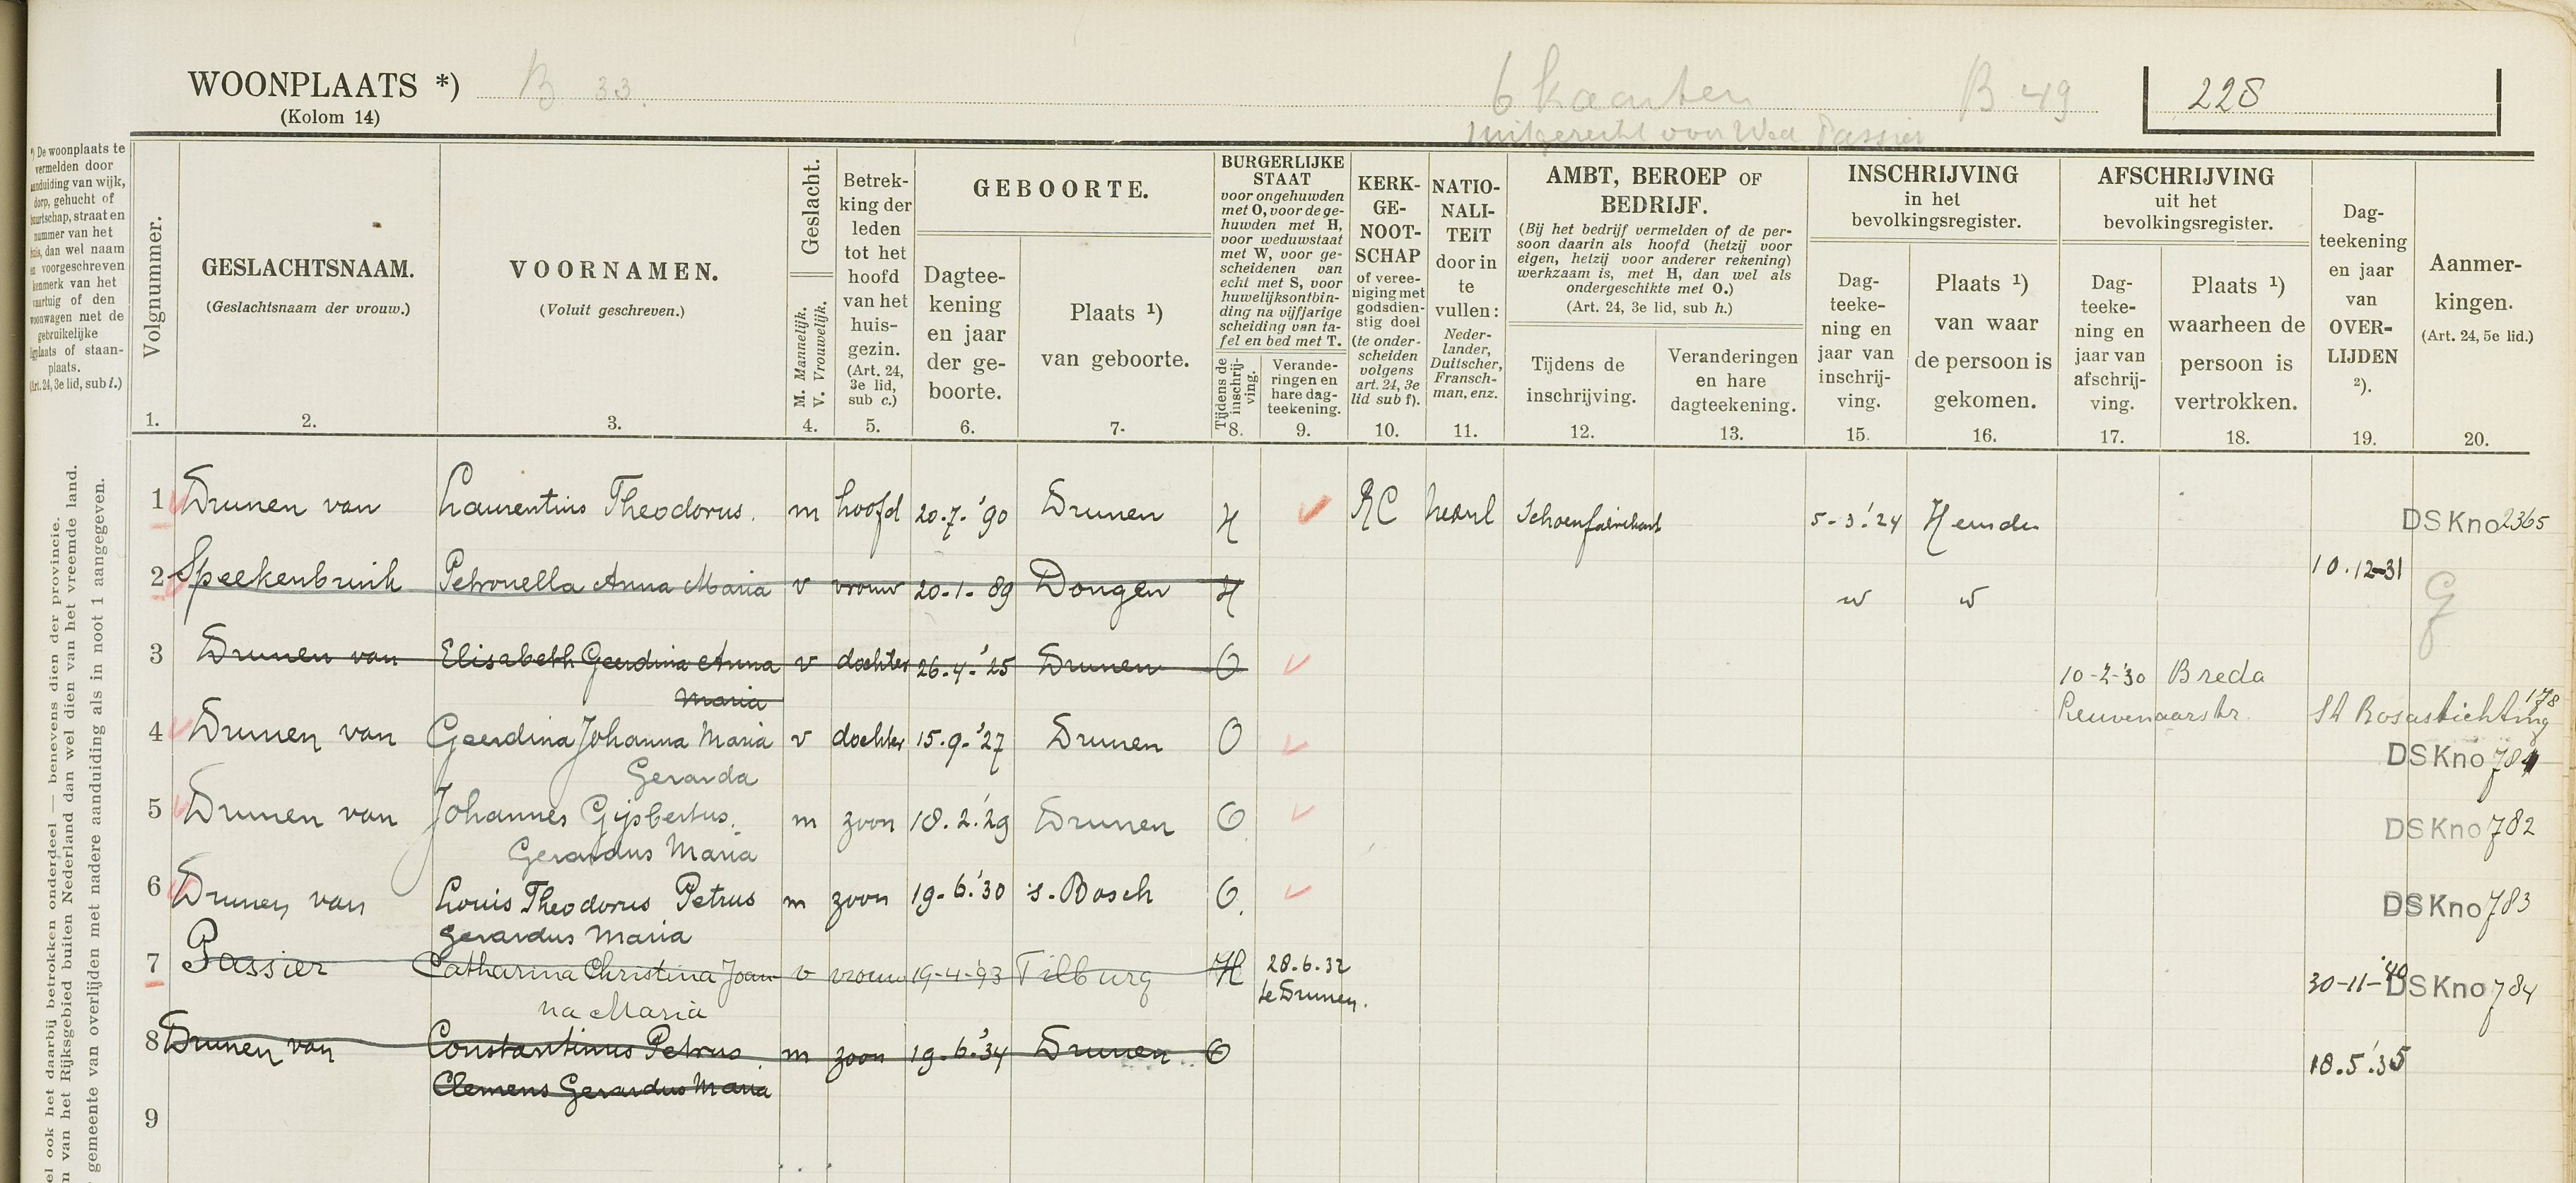 WOONPLAATS *) B 33. 6 kaarten B 49 228
(Kolom 14)
uitgereikt voor Wed Passier
*) De woonplaats te
vermelden door
aanduiding van wijk,
dorp, gehucht of
buurtschap, straat en
nummer van het
huis, dan wel naam
en voorgeschreven
kenmerk van het
vaartuig of den
woonwagen met de
gebruikelijke
ligplaats of staan-
plaats.
(Art. 24, 3e lid, sub l.)
Volgnummer.
1.
GESLACHTSNAAM.
(Geslachtsnaam der vrouw.)
2.
VOORNAMEN.
(Voluit geschreven.)
3.
Geslacht.
M. Mannelijk.
V. Vrouwelijk.
4.
Betrek-
king der
leden
tot het
hoofd
van het
huis-
gezin.
(Art. 24,
3e lid,
sub c.)
5.
GEBOORTE.
Dagtee-
kening
en jaar
der ge-
boorte.
6.
Plaats ¹)
van geboorte.
7.
BURGERLIJKE
STAAT
voor ongehuwden
met O, voor de ge-
huwden met H,
voor weduwstaat
met W, voor ge-
scheidenen van
echt met S, voor
huwelijksontbin-
ding na vijfjarige
scheiding van ta-
fel en bed met T.
Tijdens de
inschrij-
ving.
8.
Verande-
ringen en
hare dag-
teekening.
9.
KERK-
GE-
NOOT-
SCHAP
of veree-
niging met
godsdien-
stig doel
(te onder-
scheiden
volgens
art. 24, 3e
lid sub f).
10.
NATIO-
NALI-
TEIT
door in
te
vullen:
Neder-
lander,
Duitscher,
Fransch-
man, enz.
11.
AMBT, BEROEP OF
BEDRIJF.
(Bij het bedrijf vermelden of de per-
soon daarin als hoofd (hetzij voor
eigen, hetzij voor anderer rekening)
werkzaam is, met H, dan wel als
ondergeschikte met O.)
(Art. 24, 3e lid, sub h.)
Tijdens de
inschrijving.
12.
Veranderingen
en hare
dagteekening.
13.
INSCHRIJVING
in het
bevolkingsregister.
Dag-
teeke-
ning en
jaar van
inschrij-
ving.
15.
Plaats ¹)
van waar
de persoon is
gekomen.
16.
AFSCHRIJVING
uit het
bevolkingsregister.
Dag-
teeke-
ning en
jaar van
afschrij-
ving.
17.
Plaats ¹)
waarheen de
persoon is
vertrokken.
18.
Dag-
teekening
en jaar
van
OVER-
LIJDEN
²).
19.
Aanmer-
kingen.
(Art. 24, 5e lid.)
20.
1 Drunen van Laurentius Theodorus. m hoofd 20-7-'90 Drunen H RC Nederl Schoenfabrikant 5-3-'24 Heusden DSKno 2365
2 Speekenbrink Petronella Anna Maria v vrouw 20-1-89 Dongen H 10.12-31 G
3 Drunen van Elisabeth Geerdina Anna v dochter 26-4-'25 Drunen O 10-2-'30 Breda
Maria Leuvenaarstr. St Rosastichting 178
4 Drunen van Geerdina Johanna Maria v dochter 15-9-'27 Drunen O DSKno 781
Gerarda
5 Drunen van Johannes Gijsbertus. m zoon 18.2.'29 Drunen O DSKno 782
Gerardus Maria
6 Drunen van Louis Theodorus Petrus m zoon 19-6-'30 's-Bosch O. DSKno 783
Gerardus Maria
7 Passier Catharina Christina Joan- v vrouw 19-4-'93 Tilburg H 28.6.32 30-11-'40 DSKno 784
na Maria te Drunen.
8 Drunen van Constantinus Petrus m zoon 19-6-'34 Drunen O 18.5.'35
Clemens Gerardus Maria
9
el ook het daarbij betrokken onderdeel — benevens dien der provincie.
n van het Rijksgebied buiten Nederland dan wel dien van het vreemde land.
gemeente van overlijden met nadere aanduiding als in noot 1 aangegeven.